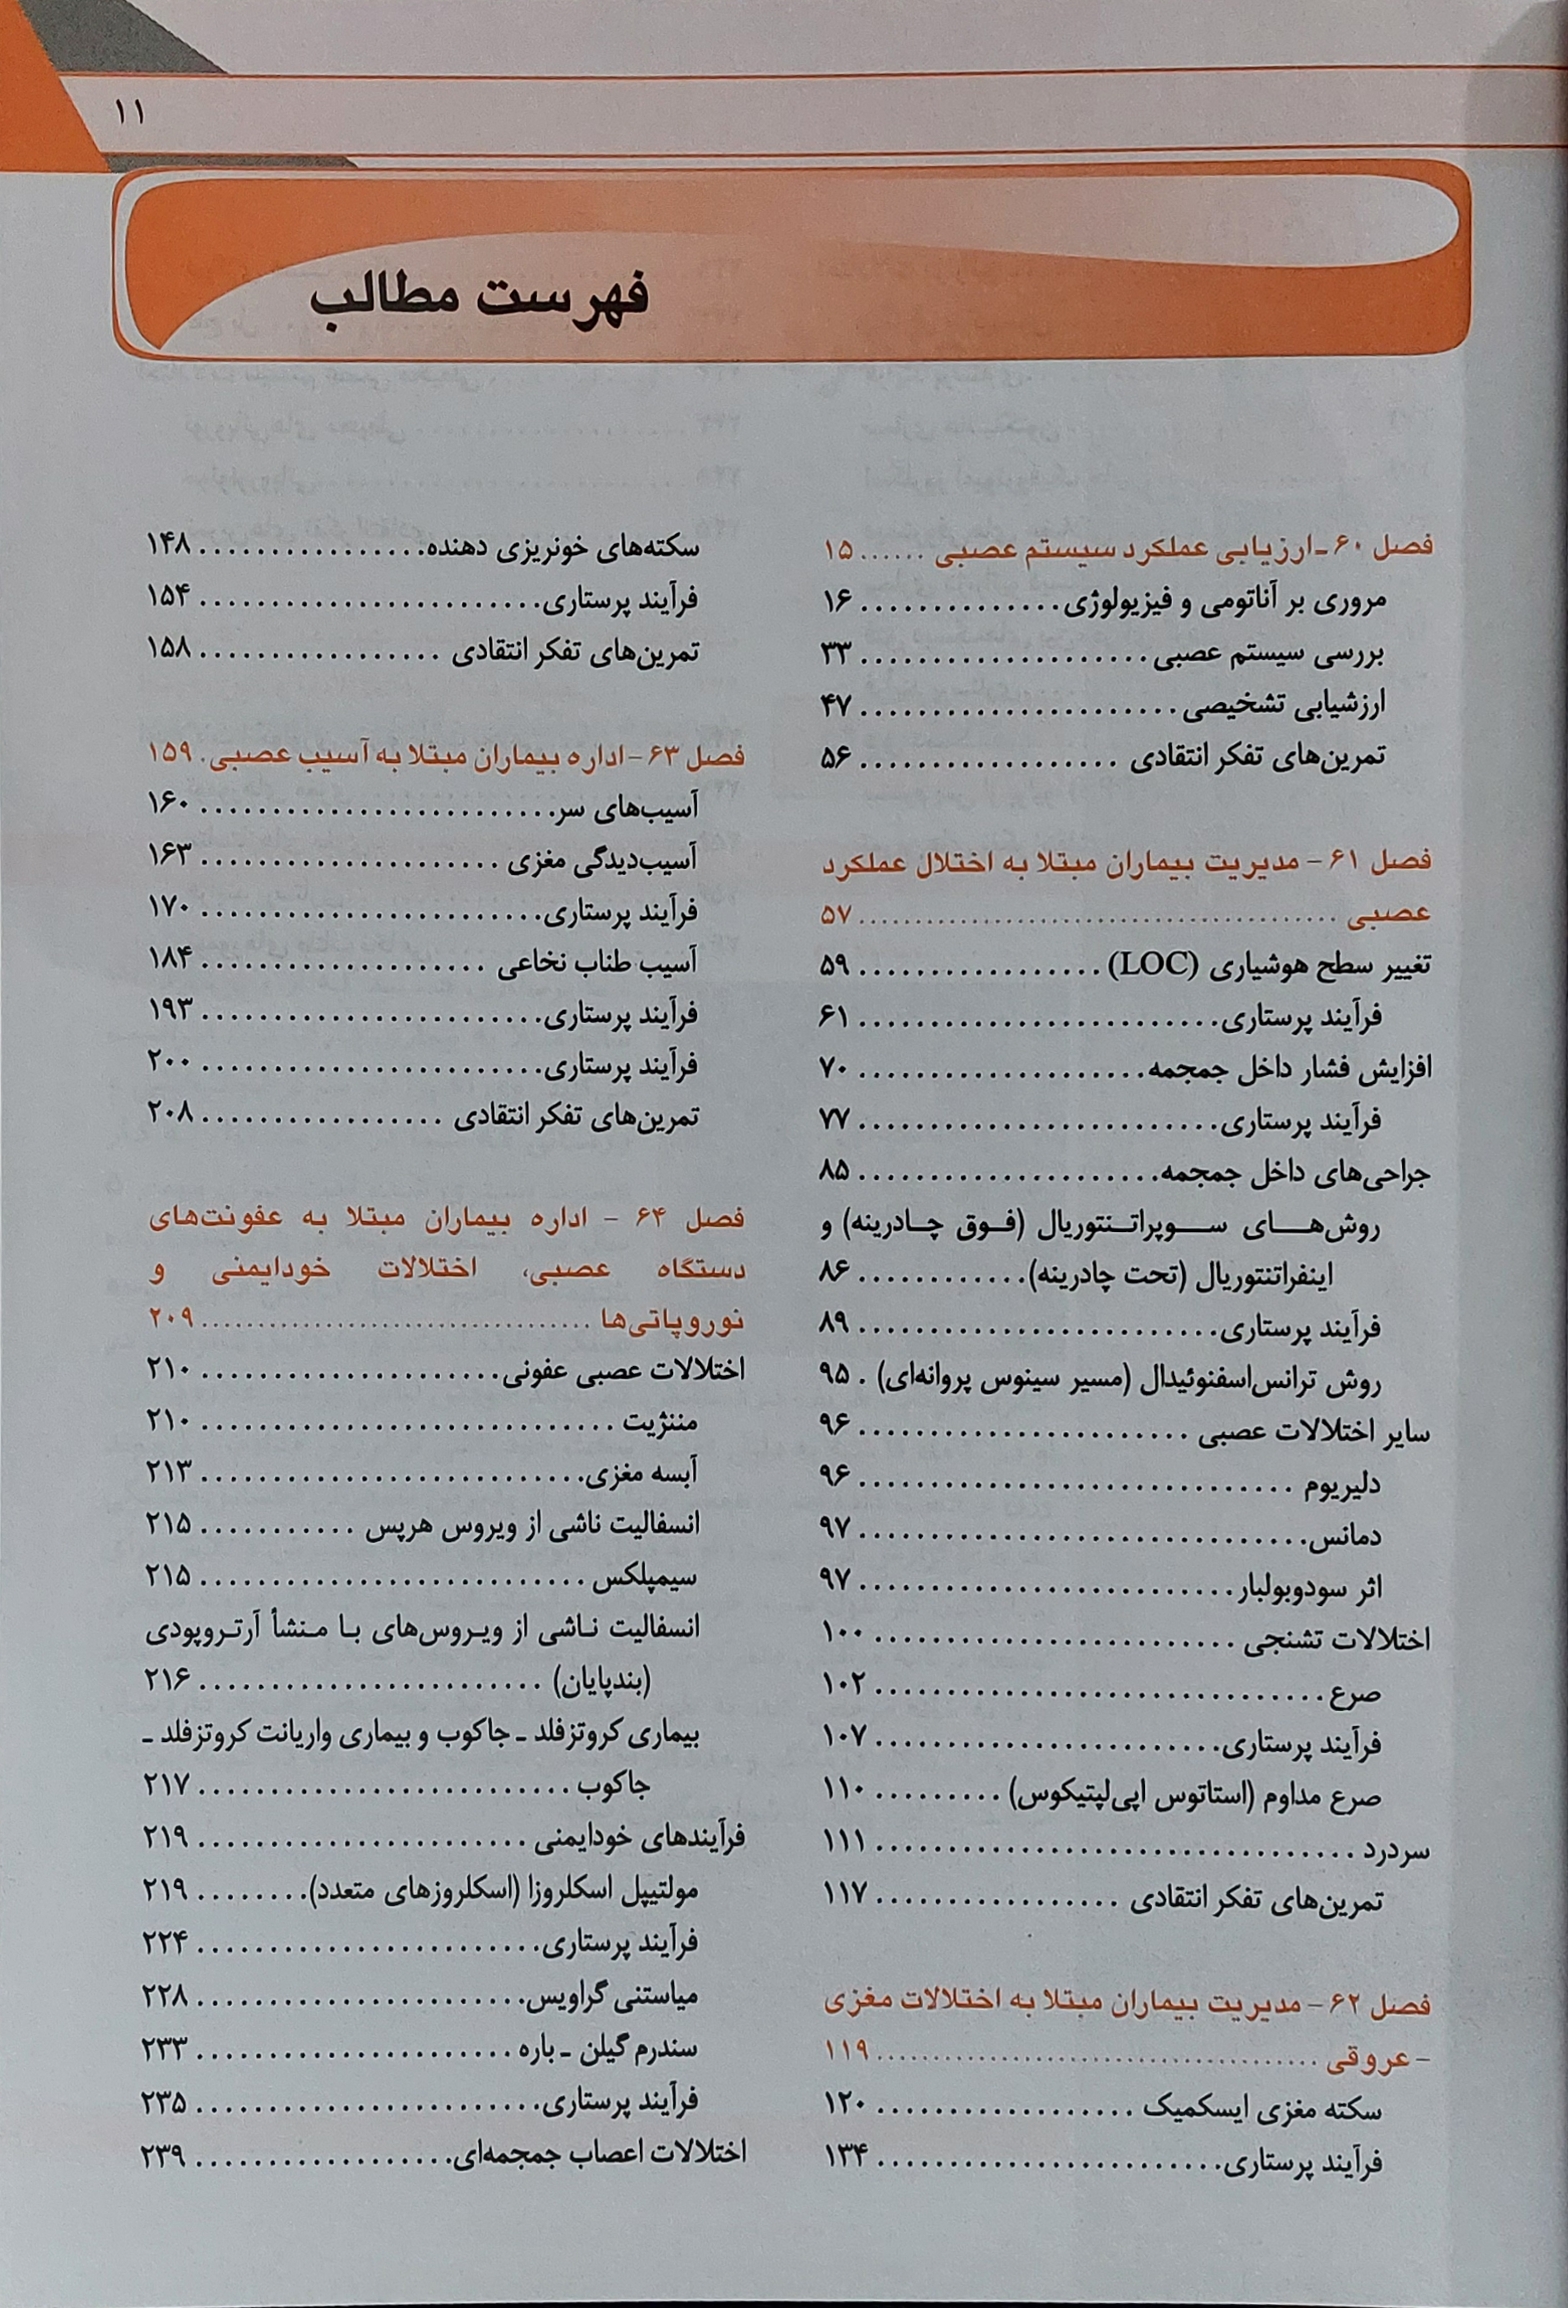 ۱۱
فهرست مطالب
فصل ۶۰ـ ارزیابی عملکرد سیستم عصبی ...... ۱۵
مروری بر آناتومی و فیزیولوژی.............. ۱۶
بررسی سیستم عصبی.................... ۳۳
ارزشیابی تشخیصی...................... ۴۷
تمرین‌های تفکر انتقادی .................. ۵۶
فصل ۶۱ - مدیریت بیماران مبتلا به اختلال عملکرد
عصبی .......................................... ۵۷
تغییر سطح هوشیاری (LOC)................. ۵۹
فرآیند پرستاری......................... ۶۱
افزایش فشار داخل جمجمه.................... ۷۰
فرآیند پرستاری......................... ۷۷
جراحی‌های داخل جمجمه...................... ۸۵
روش‌های سوپراتنتوریال (فوق چادرینه) و
اینفراتنتوریال (تحت چادرینه)............ ۸۶
فرآیند پرستاری......................... ۸۹
روش ترانس‌اسفنوئیدال (مسیر سینوس پروانه‌ای) . ۹۵
سایر اختلالات عصبی ....................... ۹۶
دلیریوم .............................. ۹۶
دمانس............................... ۹۷
اثر سودوبولبار.......................... ۹۷
اختلالات تشنجی ......................... ۱۰۰
صرع ............................... ۱۰۲
فرآیند پرستاری........................ ۱۰۷
صرع مداوم (استاتوس اپی‌لپتیکوس) ......... ۱۱۰
سردرد ................................. ۱۱۱
تمرین‌های تفکر انتقادی ................. ۱۱۷
فصل ۶۲ - مدیریت بیماران مبتلا به اختلالات مغزی
- عروقی ....................................... ۱۱۹
سکته مغزی ایسکمیک .................. ۱۲۰
فرآیند پرستاری........................ ۱۳۴
سکته‌های خونریزی دهنده................ ۱۴۸
فرآیند پرستاری........................ ۱۵۴
تمرین‌های تفکر انتقادی ................. ۱۵۸
فصل ۶۳ - اداره بیماران مبتلا به آسیب عصبی. ۱۵۹
آسیب‌های سر......................... ۱۶۰
آسیب‌دیدگی مغزی ..................... ۱۶۳
فرآیند پرستاری........................ ۱۷۰
آسیب طناب نخاعی .................... ۱۸۴
فرآیند پرستاری........................ ۱۹۳
فرآیند پرستاری........................ ۲۰۰
تمرین‌های تفکر انتقادی ................. ۲۰۸
فصل ۶۴ - اداره بیماران مبتلا به عفونت‌های
دستگاه عصبی، اختلالات خودایمنی و
نوروپاتی‌ها ................................... ۲۰۹
اختلالات عصبی عفونی..................... ۲۱۰
مننژیت ............................. ۲۱۰
آبسه مغزی........................... ۲۱۳
انسفالیت ناشی از ویروس هرپس ........... ۲۱۵
سیمپلکس ........................... ۲۱۵
انسفالیت ناشی از ویروس‌های با منشأ آرتروپودی
(بندپایان) ........................ ۲۱۶
بیماری کروتزفلد ـ جاکوب و بیماری واریانت کروتزفلد ـ
جاکوب .......................... ۲۱۷
فرآیندهای خودایمنی ....................... ۲۱۹
مولتیپل اسکلروزا (اسکلروزهای متعدد)........ ۲۱۹
فرآیند پرستاری........................ ۲۲۴
میاستنی گراویس....................... ۲۲۸
سندرم گیلن ـ باره ...................... ۲۳۳
فرآیند پرستاری........................ ۲۳۵
اختلالات اعصاب جمجمه‌ای.................. ۲۳۹